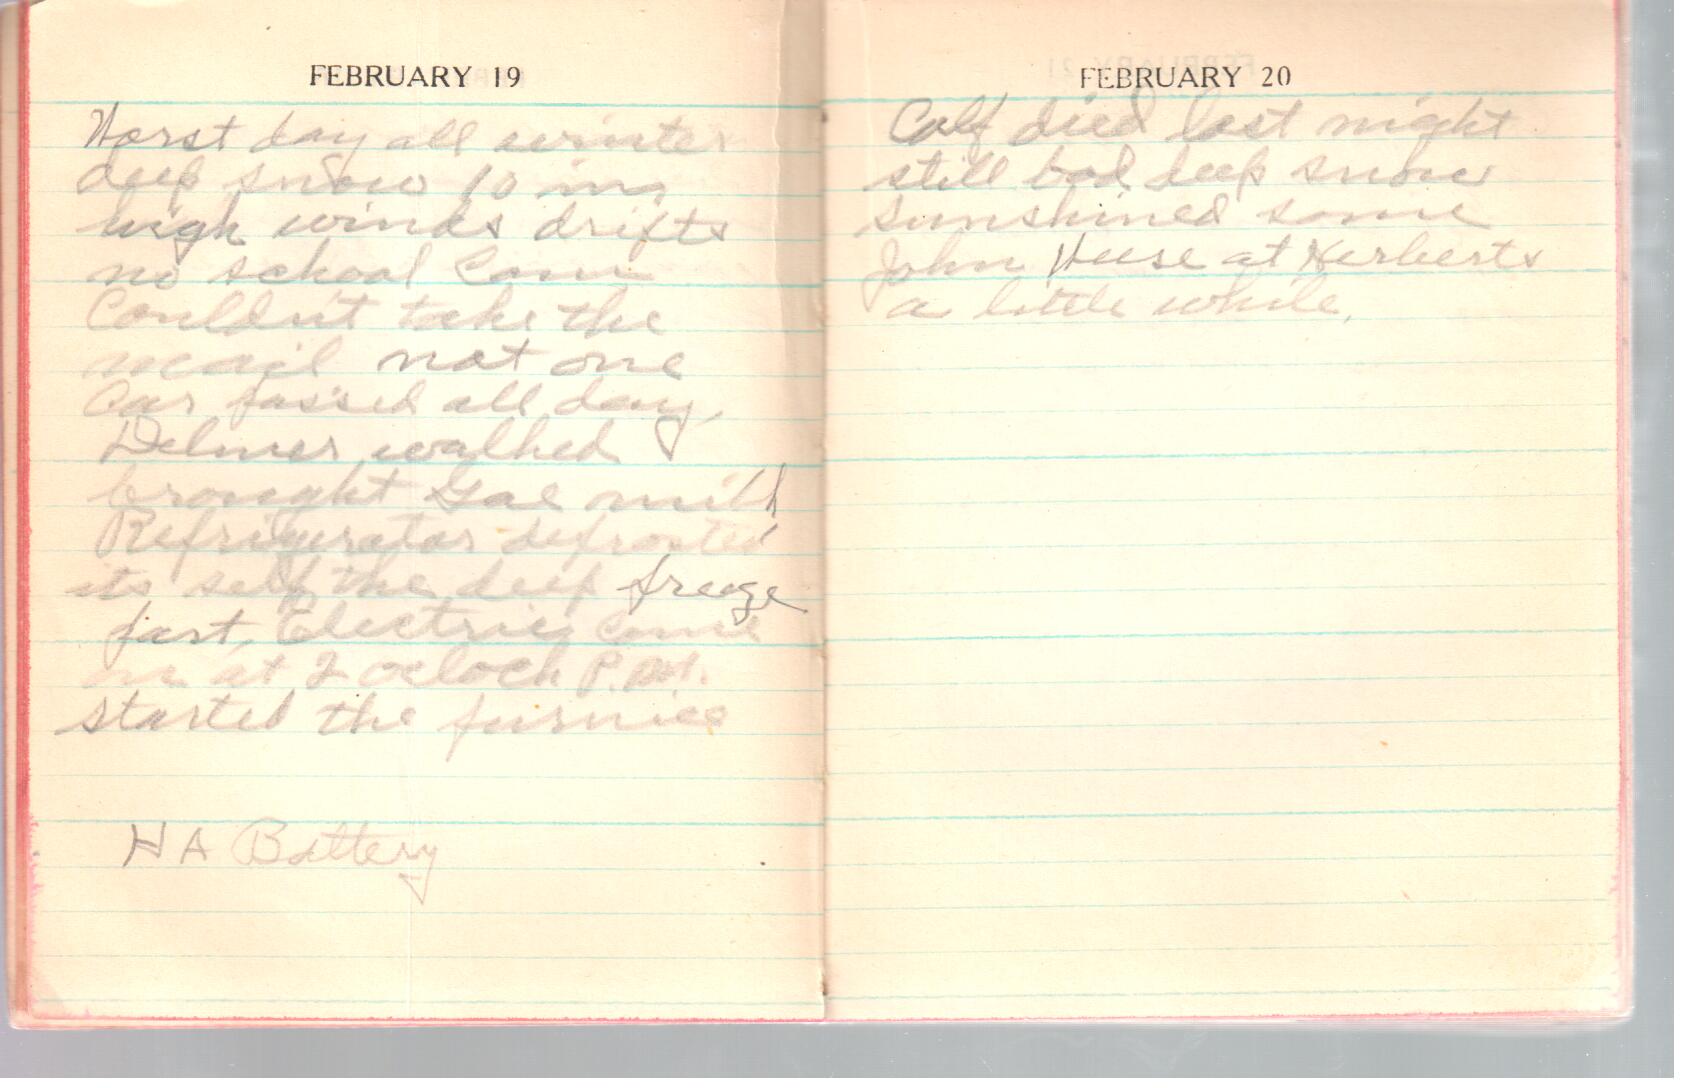 FEBRUARY 19
Worst day all winter
deep snow 10 ins
high winds drifts
no school Cars
Couldn't take the
mail not one
Car passed all day,
Delmer walked
brought Gal milk
Refrigerator defrosted
its self the deep freeze
part, Electric Came
on at 2 oclock P.M.
started the furnice
H A Battery
FEBRUARY 20
Calf died last night
still bad deep snow
sunshined some
John Heese at Herberts
a little while.